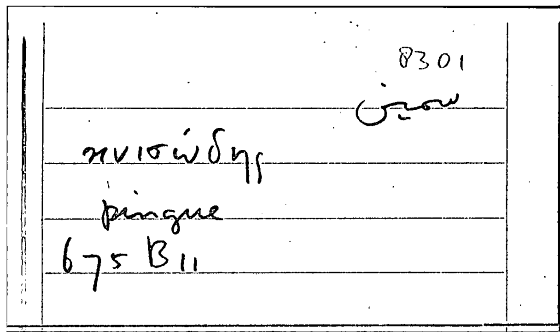 8301
سمين
κνισώδης
pingue
675 B 11